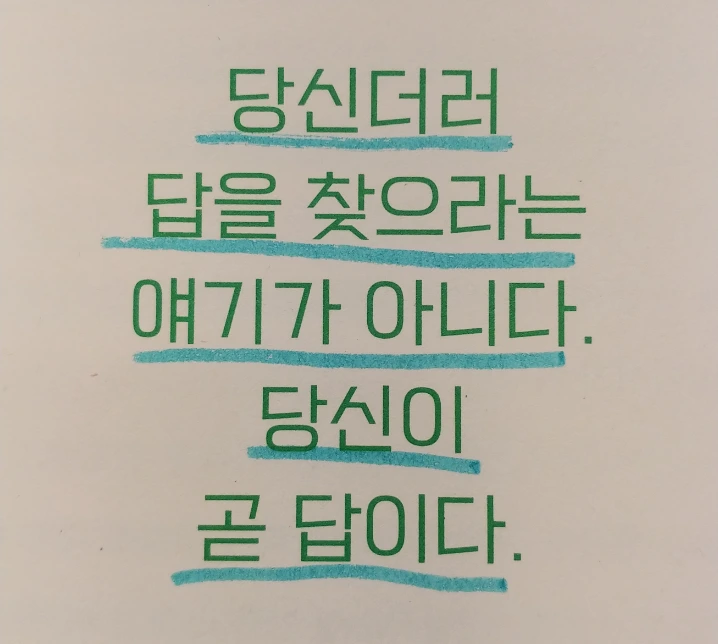 당신더러
답을 찾으라는
얘기가 아니다.
당신이
곧 답이다.